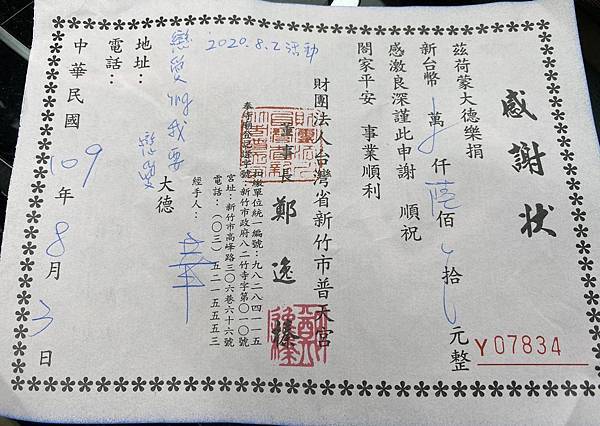 感謝狀
茲荷蒙大德樂捐
新台幣 萬 仟陸佰 拾 元整
感激良深謹此申謝 順祝
閤家平安 事業順利
財團法人台灣省新竹市普天宮
董事長 鄭逸榛
扣繳單位統一編號:九八二八四一一五
奉寺廟登記證字號:新竹市政府八二竹寺字第〇一〇號
宮址:新竹市高峰路三〇六巷六十六號
電話:(〇三)五二一五五五三
經手人:
2020.8.2活動
戀愛ing我要戀愛 大德
地址:
電話:
中華民國 109 年 8 月 3 日
Y 07834